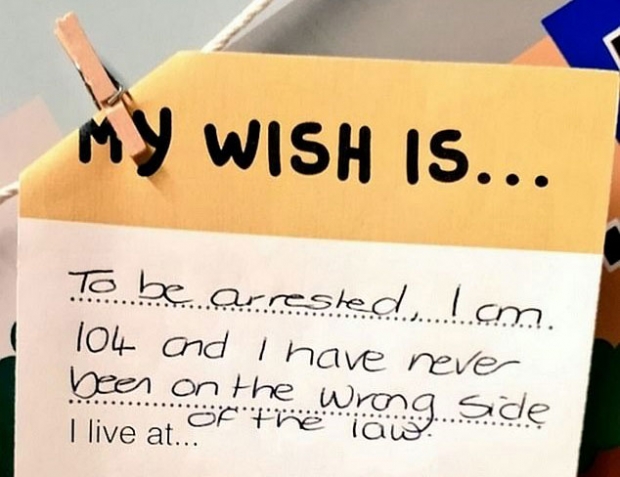 MY WISH IS...
To be arrested, I am.
104 and I have never
been on the wrong side
of the law.
I live at...